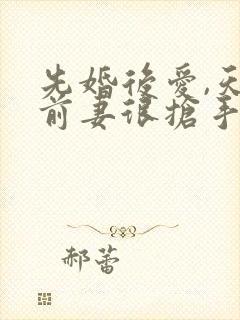 先婚後愛,天
前妻很搶手
郝蕾